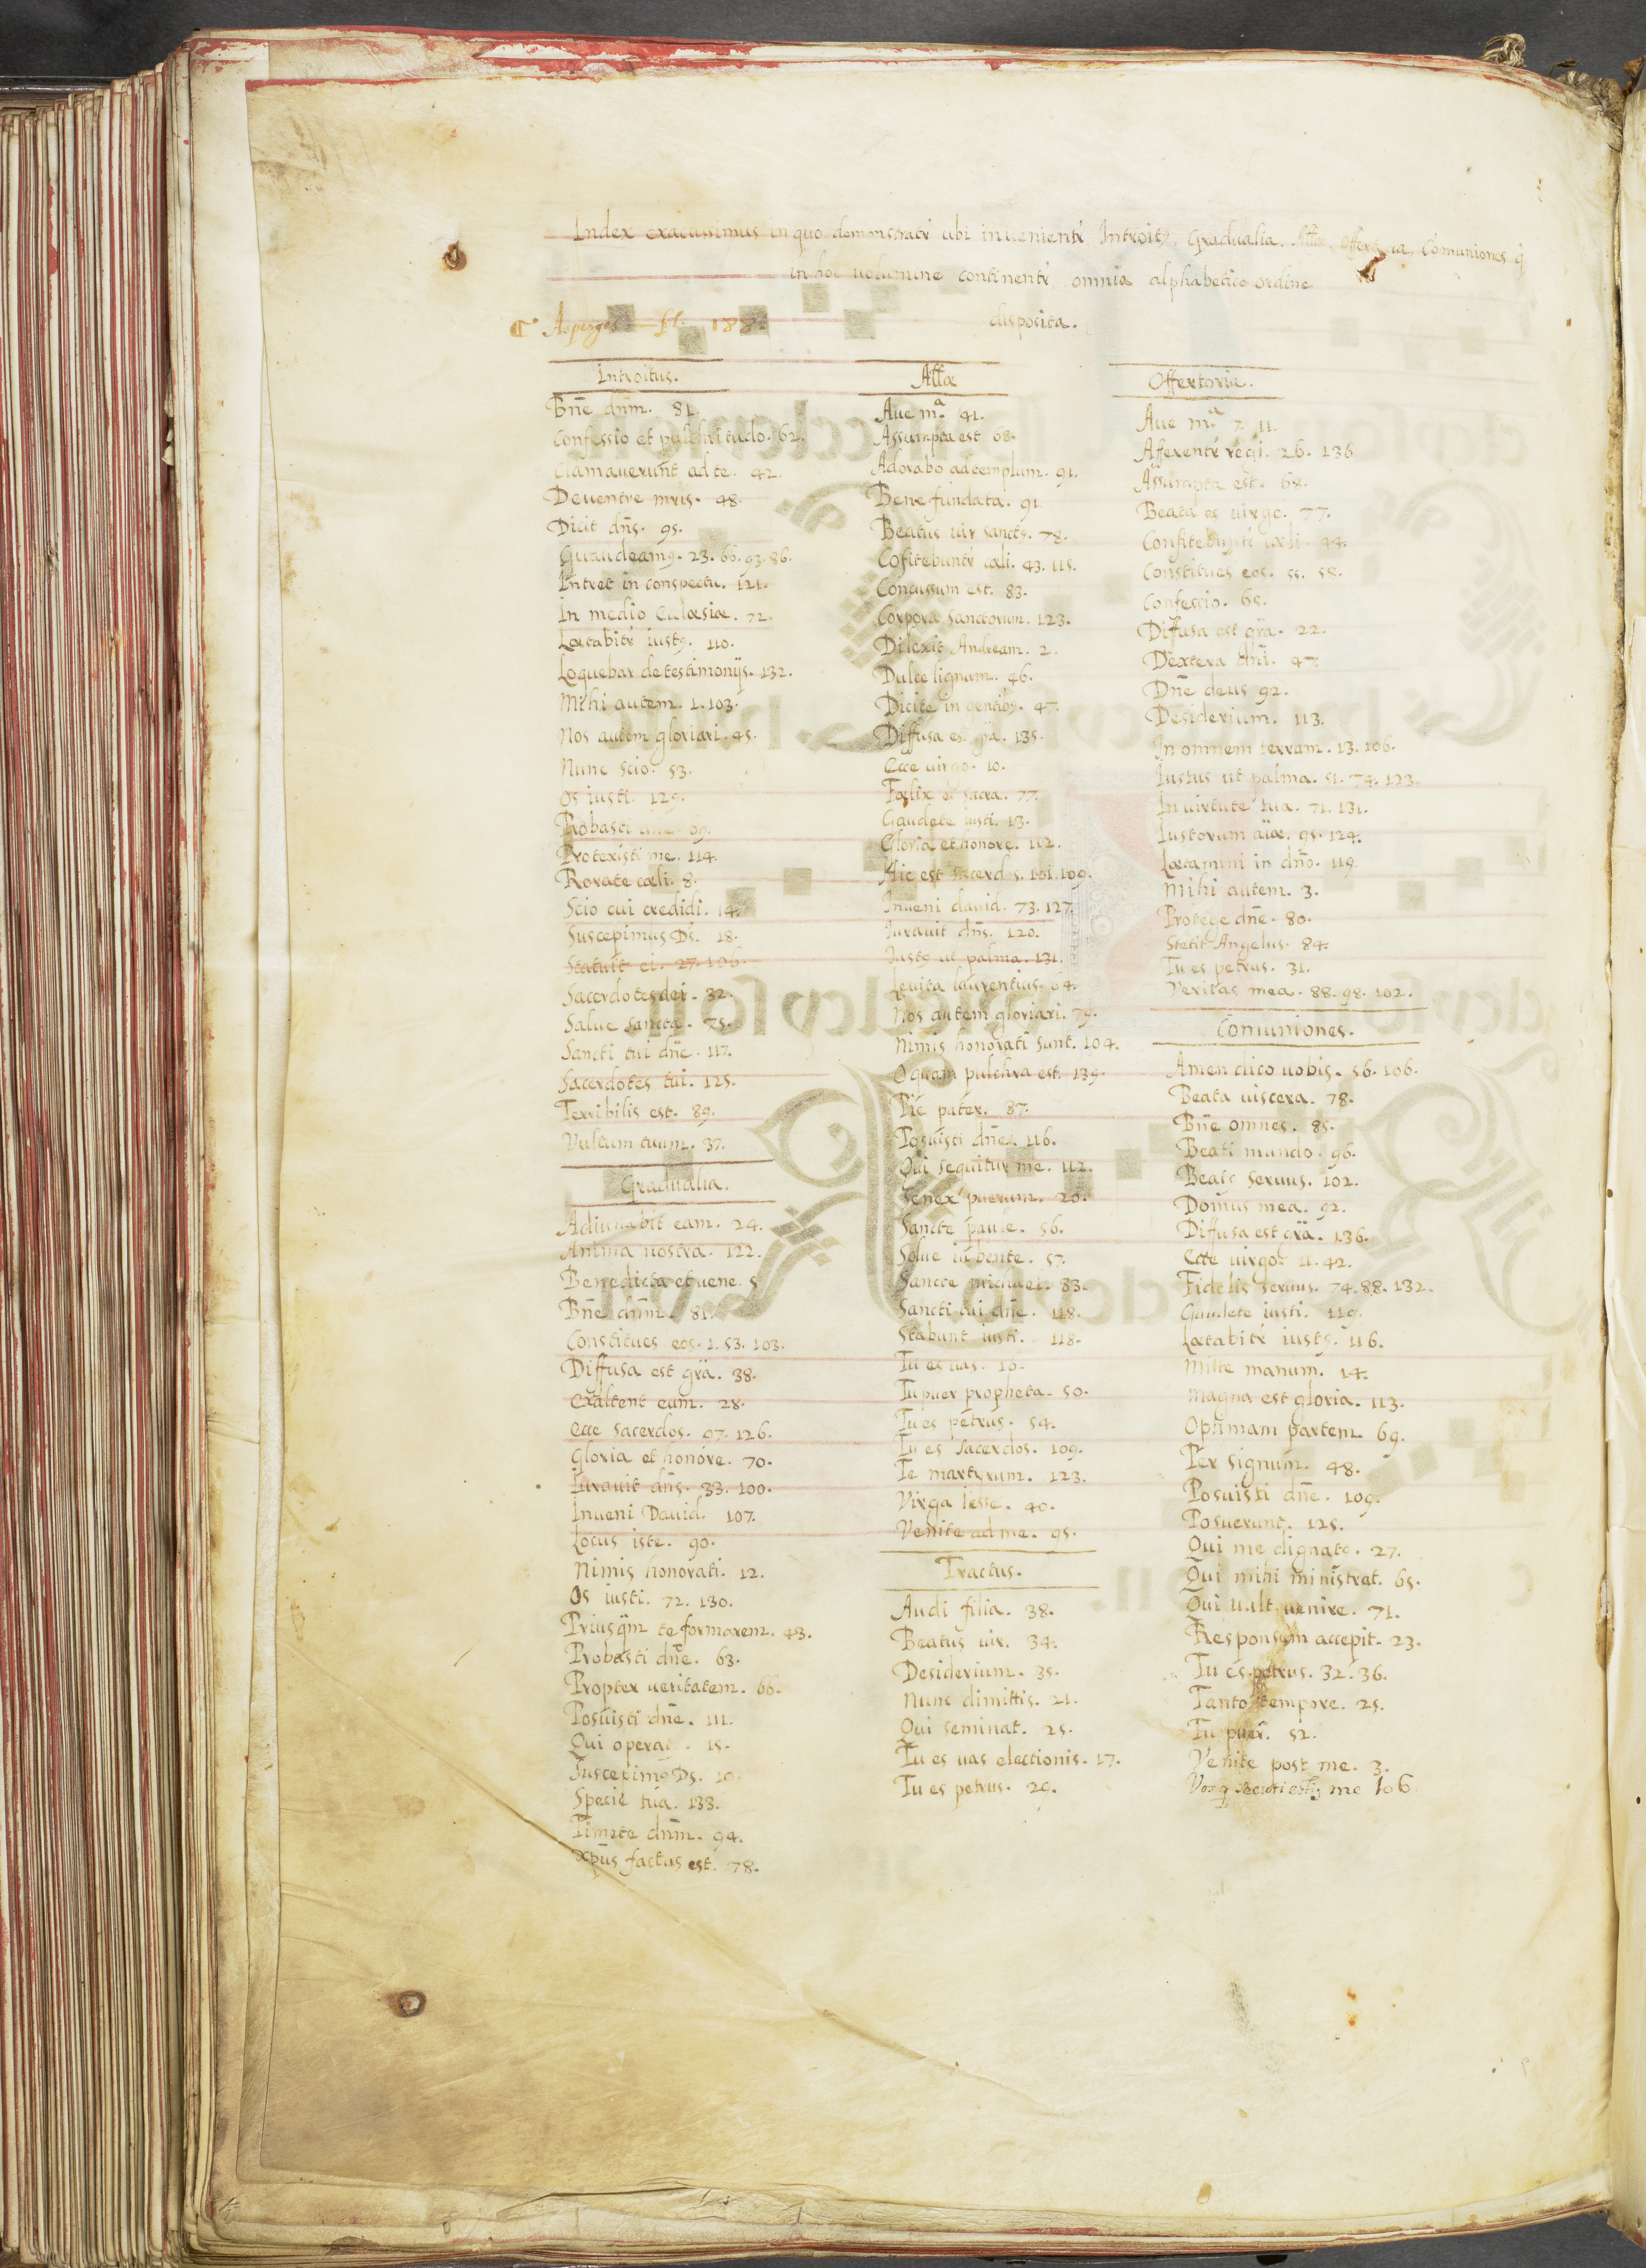 Index exacussimus in quo demonstratr ubi inuenientr Introitꝰ, Gradualia, Alla, Offertoria, Comuniones q̃
in hoc uolumine continentr omnia alphabetico ordine
disposita.
Asperges fl. 188.
Introitus.
Bñe dñm. 81.
Confessio et pulchritudo. 62.
Clamauerunt ad te. 42.
De uentre mris. 48.
Dicit dñs. 95.
Guaudeamꝰ. 23. 66. 93. 86.
Intret in conspectu. 121.
In medio Eclæsiæ. 72.
Lætabitr iustꝰ. 110.
Loquebar de testimonijs. 132.
Mihi autem. 1. 103.
Nos autem gloriari. 45.
Nunc scio. 53.
Os iusti. 129.
Probasti
Protexisti me. 114.
Rorate cæli. 8.
Scio cui credidi. 14.
Suscepimus Ds. 18.
Statuit ei. 27. 106.
Sacerdotes dei. 32.
Salue sancta. 75.
Sancti tui dñe. 117.
Sacerdotes tui. 125.
Terribilis est. 89.
Vultum tuum. 37.
Gradualia.
Adiuuabit eam. 24.
Anima nostra. 122.
Benedicta et uene. 5
Bñe dñm. 81.
Constitues eos. 1. 53. 103.
Diffusa est gra. 38.
Exaltent eum. 28.
Ecce sacerdos. 97. 126.
Gloria et honore. 70.
Iurauit dñs. 33. 100.
Inueni Dauid. 107.
Locus iste. 90.
Nimis honorati. 12.
Os iusti. 72. 130.
Priusqm te formarem. 43.
Probasti dñe. 63.
Propter ueritatem. 66.
Posuisti dñe. 111.
Qui operat. 15.
Suscepimꝰ Ds.
Specie tua. 133.
Timete dñm. 94.
xpũs factus est. 78.
Alla
Aue mª. 41.
Assumpta est 68.
Adorabo ad templum. 91.
Bene fundata. 91
Beatus uir sanctꝰ. 78.
Cofitebuntr cæli. 43. 115.
Concussum est. 83.
Corpora sanctorum. 123.
Dilexit Andream. 2.
Dulce lignum. 46.
Dicite in gentibꝰ. 47.
Diffusa est gra. 135.
Ecce uirgo. 10.
Fælix es sacra. 77.
Gaudete iusti. 13.
Gloria et honore. 112.
Hic est sacerdos. 101. 109.
Inueni dauid. 73. 127.
Iurauit dñs. 120.
Iustꝰ ut palma. 131.
Leuita laurentius. 64.
Nos autem gloriari. 79.
Nimis honorati sunt. 104.
O quam pulchra est. 139.
Pie pater. 87.
Posuisti dñe. 116.
Qui sequitur me. 112.
Senex puerum. 20.
Sancte paule. 56.
Solue iubente. 57.
Sancte michael. 83.
Sancti tui dñe. 118.
Stabunt iusti. 118.
Tu es uas. 16.
Tu puer propheta. 50.
Tu es petrus. 54.
Tu es sacerdos. 109.
Te martyrum. 123.
Virga Iesse. 40.
Venite ad me. 95.
Tractus.
Audi filia. 38.
Beatus uir. 34.
Desiderium. 35.
Nunc dimittis. 21.
Qui seminat. 25.
Tu es uas electionis. 17.
Tu es petrus. 29.
Offertoria.
Aue mª. 7. 11.
Afferentr regi. 26. 136
Assumpta est. 68.
Beata es uirgo. 77.
Confitebuntr cæli. 44.
Constitues eos. 55. 58.
Confessio. 65.
Diffusa est gra. 22.
Dextera dni. 47.
Dñe deus 92.
Desiderium. 113.
In omnem terram. 13. 106.
Iustus ut palma. 51. 74. 123.
In uirtute tua. 71. 131.
Iustorum aiæ. 95. 124.
Lætamini in dño. 119.
Mihi autem. 3.
Protege dñe. 80.
Stetit Angelus. 84.
Tu es petrus. 31.
Veritas mea. 88. 98. 102.
Comuniones.
Amen dico uobis. 56. 106.
Beata uiscera. 78.
Bñe omnes. 85.
Beati mundo. 96.
Beatꝰ seruus. 102.
Domus mea. 92.
Diffusa est gra. 136.
Ecce uirgo. 11. 42.
Fidelis seruus. 74. 88. 132.
Gaudete iusti. 119.
Lætabitr iustꝰ. 116.
Mitte manum. 14.
Magna est gloria. 113.
Optimam partem. 69.
Per signum. 48.
Posuisti dñe. 109.
Posuerunt. 125.
Qui me dignatꝰ. 27.
Qui mihi ministrat. 65.
Qui uult uenire. 71.
Responsum accepit. 23.
Tu es petrus. 32. 36.
Tanto tempore. 25.
Tu puer. 52.
Venite post me. 3.
Vos q secuti estis me 106